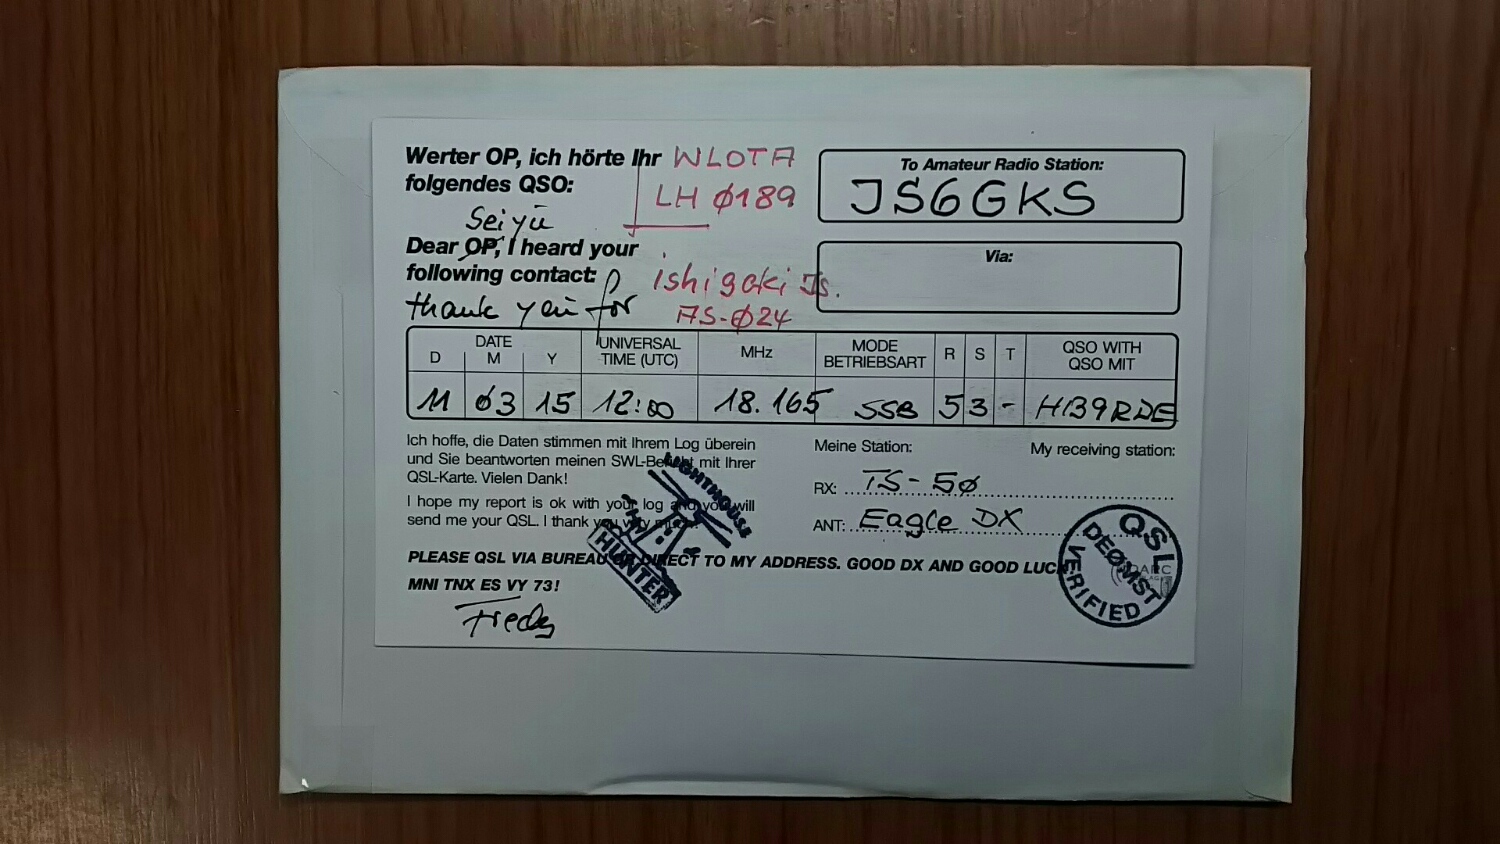 Werter OP, ich hörte Ihr WLOTA
folgendes QSO: LH Ø189
To Amateur Radio Station:
JS6GKS
Seiyū
Dear OP, I heard your
following contact: Ishigaki Is.
thank you for AS-Ø24
Via:
DATE
D M Y
UNIVERSAL
TIME (UTC)
MHz
MODE
BETRIEBSART
R S T
QSO WITH
QSO MIT
11 Ø3 15 12:00 18.165 SSB 5 3 - HB9RDE
Ich hoffe, die Daten stimmen mit Ihrem Log überein
und Sie beantworten meinen SWL-Bericht mit Ihrer
QSL-Karte. Vielen Dank!
I hope my report is ok with your log and you will
send me your QSL. I thank you very much.
Meine Station: My receiving station:
RX: TS-5Ø
ANT: Eagle DX
PLEASE QSL VIA BUREAU OR DIRECT TO MY ADDRESS. GOOD DX AND GOOD LUCK
MNI TNX ES VY 73!
Fredy
LIGHTHOUSE
HUNTER
QSL
DEØMST
VERIFIED
DARC